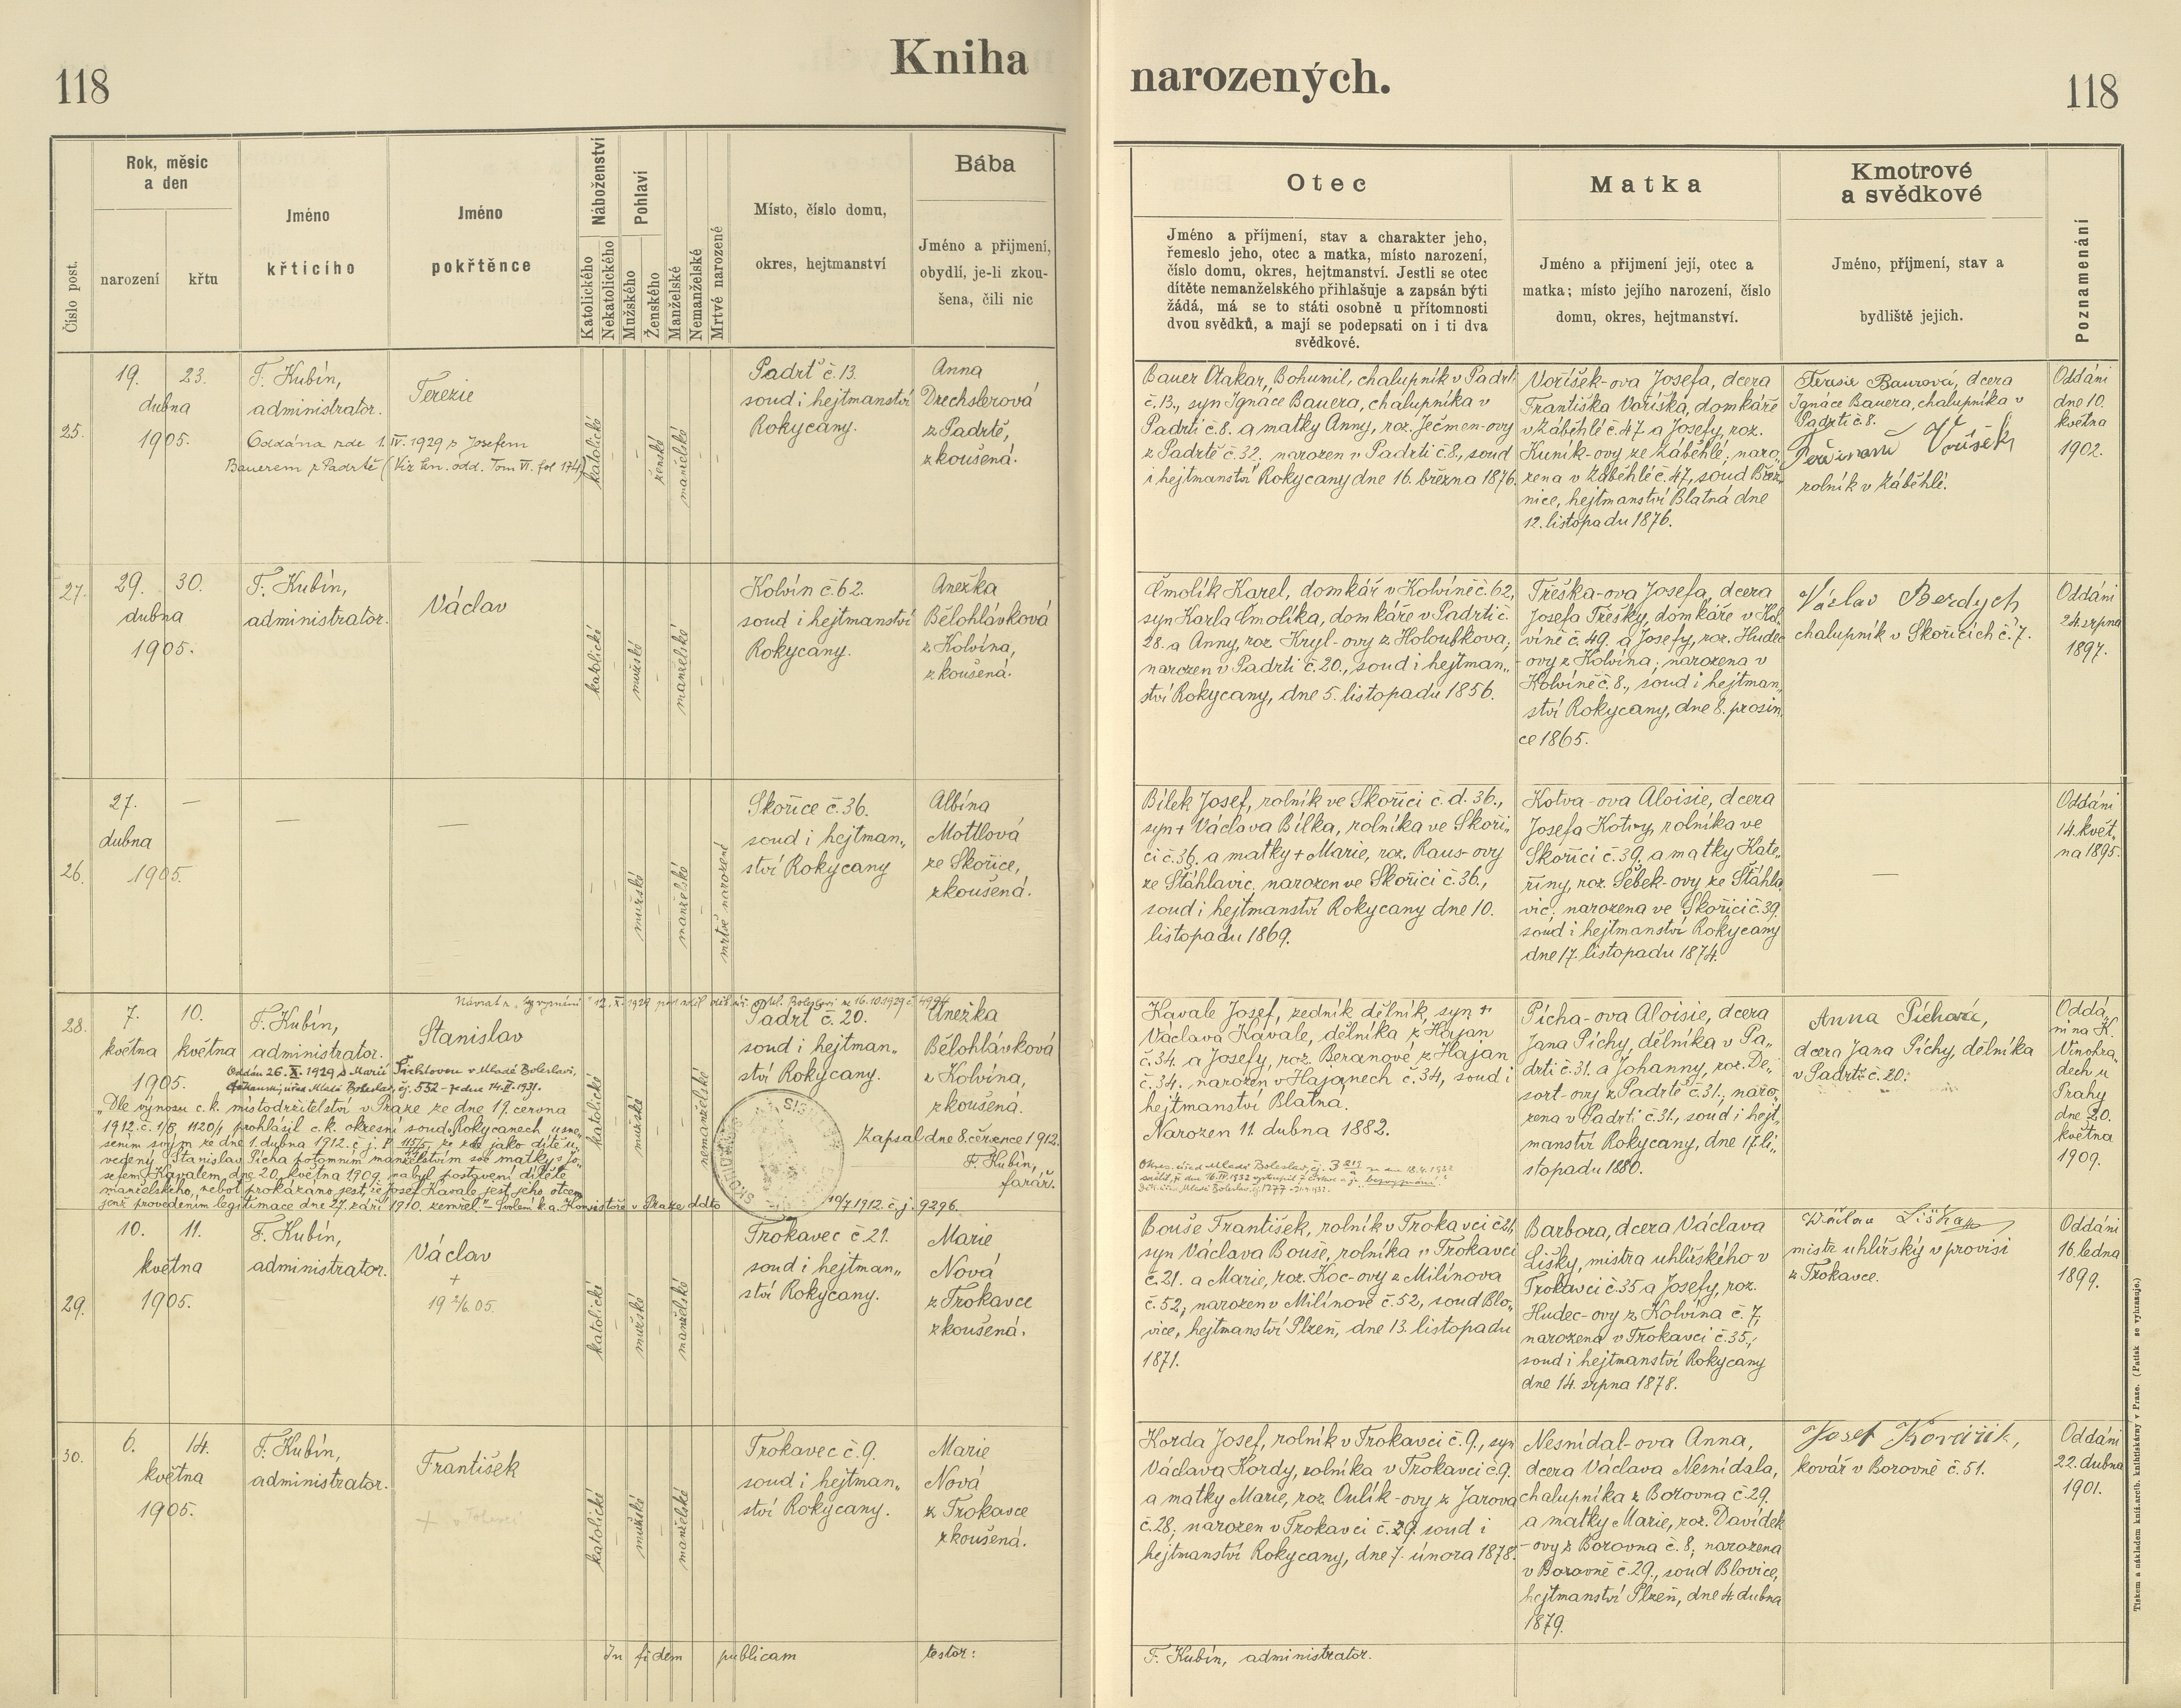 118
Kniha
narozených.
118
Číslo post.
Rok, měsíc
a den
narození
křtu
Jméno
křtícího
Jméno
pokřtěnce
Náboženství
Katolického
Nekatolického
Pohlaví
Mužského
Ženského
Manželské
Nemanželské
Mrtvě narozené
Místo, číslo domu,
okres, hejtmanství
Bába
Jméno a přijmení,
obydlí, je-li zkou-
šena, čili nic
Otec
Jméno a příjmení, stav a charakter jeho,
řemeslo jeho, otec a matka, místo narození,
číslo domu, okres, hejtmanství. Jestli se otec
dítěte nemanželského přihlašuje a zapsán býti
žádá, má se to státi osobně u přítomnosti
dvou svědků, a mají se podepsati on i ti dva
svědkové.
Matka
Jméno a přijmení její, otec a
matka; místo jejího narození, číslo
domu, okres, hejtmanství.
Kmotrové
a svědkové
Jméno, příjmení, stav a
bydliště jejich.
Poznamenání
25.
19. 23.
dubna
1905.
F. Kubín,
administrator.
Terezie
Oddána zde 1. IV. 1929 s Josefem
Bauerem z Padrtě (Viz kn. odd. Tom VI. fol 174)
katolické
ženské
manželské
Padrť č. 13.
soud i hejtmanství
Rokycany.
Anna
Drechslerová
z Padrtě,
zkoušená.
Bauer Otakar, Bohumil, chalupník v Padrti
č. 13., syn Ignáce Bauera, chalupníka v
Padrti č. 8. a matky Anny, roz. Ječmen-ovy
z Padrtě č. 32. narozen v Padrti č. 8., soud
i hejtmanství Rokycany dne 16. března 1876.
Voříšek-ova Josefa, dcera
Františka Voříška, domkáře
v Záběhlé č. 47 a Josefy, roz.
Kuník-ovy ze Záběhlé; naro-
zena v Záběhlé č. 47, soud Břez-
nice, hejtmanství Blatná dne
12. listopadu 1876.
Terezie Baurová, dcera
Ignáce Bauera, chalupníka v
Padrti č. 8.
Voříšek
rolník v Záběhlé.
Oddáni
dne 10.
května
1902.
27.
29. 30.
dubna
1905.
F. Kubín,
administrator.
Václav
katolické
mužské
manželské
Kolvín č. 62.
soud i hejtmanství
Rokycany.
Anežka
Bělohlávková
z Kolvína,
zkoušená.
Čmolík Karel, domkář v Kolvíně č. 62,
syn Karla Čmolíka, domkáře v Padrti č.
28. a Anny, roz. Kryl-ovy z Holoubkova;
narozen v Padrti č. 20., soud i hejtman„
ství Rokycany, dne 5. listopadu 1856.
Třeška-ova Josefa, dcera
Josefa Třešky, domkáře v Kol-
víně č. 49. a Josefy, roz. Hudec
-ovy z Kolvína; narozena v
Kolvíně č. 8., soud i hejtman„
ství Rokycany, dne 8. prosin
ce 1865.
Václav Berdych
chalupník v Skořicích č. 7.
Oddáni
24. srpna
1897.
26.
27. —
dubna
1905.
—
—
mužské
manželské
mrtvě narozené
Skořice č. 36.
soud i hejtman„
ství Rokycany
Albína
Mottlová
ze Skořice,
zkoušená.
Bílek Josef, rolník ve Skořici č. d. 36.,
syn + Václava Bílka, rolníka ve Skoři„
ci č. 36. a matky + Marie, roz. Raus-ovy
ze Šťáhlavic, narozen ve Skořici č. 36.,
soud i hejtmanství Rokycany dne 10.
listopadu 1869.
Kotva-ova Aloisie, dcera
Josefa Kotvy, rolníka ve
Skořici č. 39. a matky Kate„
řiny, roz. Šebek-ovy ze Šťáhla
vic, narozena ve Skořici č. 39.
soud i hejtmanství Rokycany
dne 17. listopadu 1874.
—
Oddáni
14. květ„
na 1895.
28.
7. 10.
května května
1905.
F. Kubín,
administrator.
Stanislav
Oddán 26. X. 1929 s Marií Šichtovou v Mladé Boleslavi.
Děkanský úřad Mladá Boleslav, čj. 552 - ze dne 14. II. 1931.
„Dle výnosu c. k. místodržitelství v Praze ze dne 19. června
1912. č. 1/8, 1120/1 prohlásil c. k. okresní soud v Rokycanech usne„
sením svým ze dne 1. dubna 1912. č. j. P 115/5, že zde jako dítě u„
vedený Stanislav Pícha potomním manželstvím své matky s Jo„
sefem Kavalem, dne 20. května 1909. nabyl postavení dítěte
manželského, neboť prokázáno jest, že Josef Kavale jest jeho otcem,
jenž provedením legitimace dne 27. září 1910. zemřel. — Svolení k. a. Konsistoře v Praze ddto
10/7 1912. č. j. 9296.
katolické
mužské
nemanželské
Padrť č. 20.
soud i hejtman„
ství Rokycany.
Anežka
Bělohlávková
z Kolvína,
zkoušená.
Zapsal dne 8. července 1912.
F. Kubín,
farář.
Kavale Josef, zedník dělník, syn +
Václava Kavale, dělníka z Hajan
č. 34. a Josefy, roz. Beranové z Hajan
č. 34. narozen v Hajanech č. 34, soud i
hejtmanství Blatná.
Narozen 11. dubna 1882.
Pícha-ova Aloisie, dcera
Jana Píchy, dělníka v Pa„
drti č. 31. a Johanny, roz. De„
sort-ovy z Padrtě č. 31., naro„
zena v Padrti č. 31., soud i hejt„
manství Rokycany, dne 17. li„
stopadu 1880.
Anna Píchová,
dcera Jana Píchy, dělníka
v Padrti č. 20.
Oddá„
ni na K.
Vinohra„
dech u
Prahy
dne 20.
května
1909.
29.
10. 11.
května
1905.
F. Kubín,
administrator.
Václav
+
19 2/6. 05.
katolické
mužské
manželské
Trokavec č. 21.
soud i hejtman„
ství Rokycany.
Marie
Nová
z Trokavce
zkoušená.
Bouše František, rolník v Trokavci č. 21,
syn Václava Bouše, rolníka v Trokavci
č. 21. a Marie, roz. Koc-ovy z Milínova
č. 52; narozen v Milínově č. 52, soud Blo„
vice, hejtmanství Plzeň, dne 13. listopadu
1871.
Barbora, dcera Václava
Lišky, mistra uhlířského v
Trokavci č. 35 a Josefy, roz.
Hudec-ovy z Kolvína č. 7,
narozena v Trokavci č. 35.;
soud i hejtmanství Rokycany
dne 14. srpna 1878.
Václav Liška
mistr uhlířský v provisi
z Trokavce.
Oddáni
16. ledna
1899.
30.
6. 14.
května
1905.
F. Kubín,
administrator.
František
katolické
mužské
manželské
Trokavec č. 9.
soud i hejtman„
ství Rokycany.
Marie
Nová
z Trokavce
zkoušená.
Korda Josef, rolník v Trokavci č. 9., syn
Václava Kordy, rolníka v Trokavci č. 9.
a matky Marie, roz. Oulík-ovy z Jarova
č. 28; narozen v Trokavci č. 29. soud i
hejtmanství Rokycany, dne 7. února 1878.
Nesnídal-ova Anna,
dcera Václava Nesnídala,
chalupníka z Borovna č. 29.
a matky Marie, roz. Davídek
-ovy z Borovna č. 8; narozena
v Borovně č. 29., soud Blovice,
hejtmanství Plzeň, dne 4. dubna
1879.
Josef Kovářík,
kovář v Borovně č. 51.
Oddáni
22. dubna
1901.
In fidem publicam testor:
F. Kubín, administrator.
Tiskem a nákladem kníž. arcib. knihtiskárny v Praze. (Patisk se vyhrazuje.)